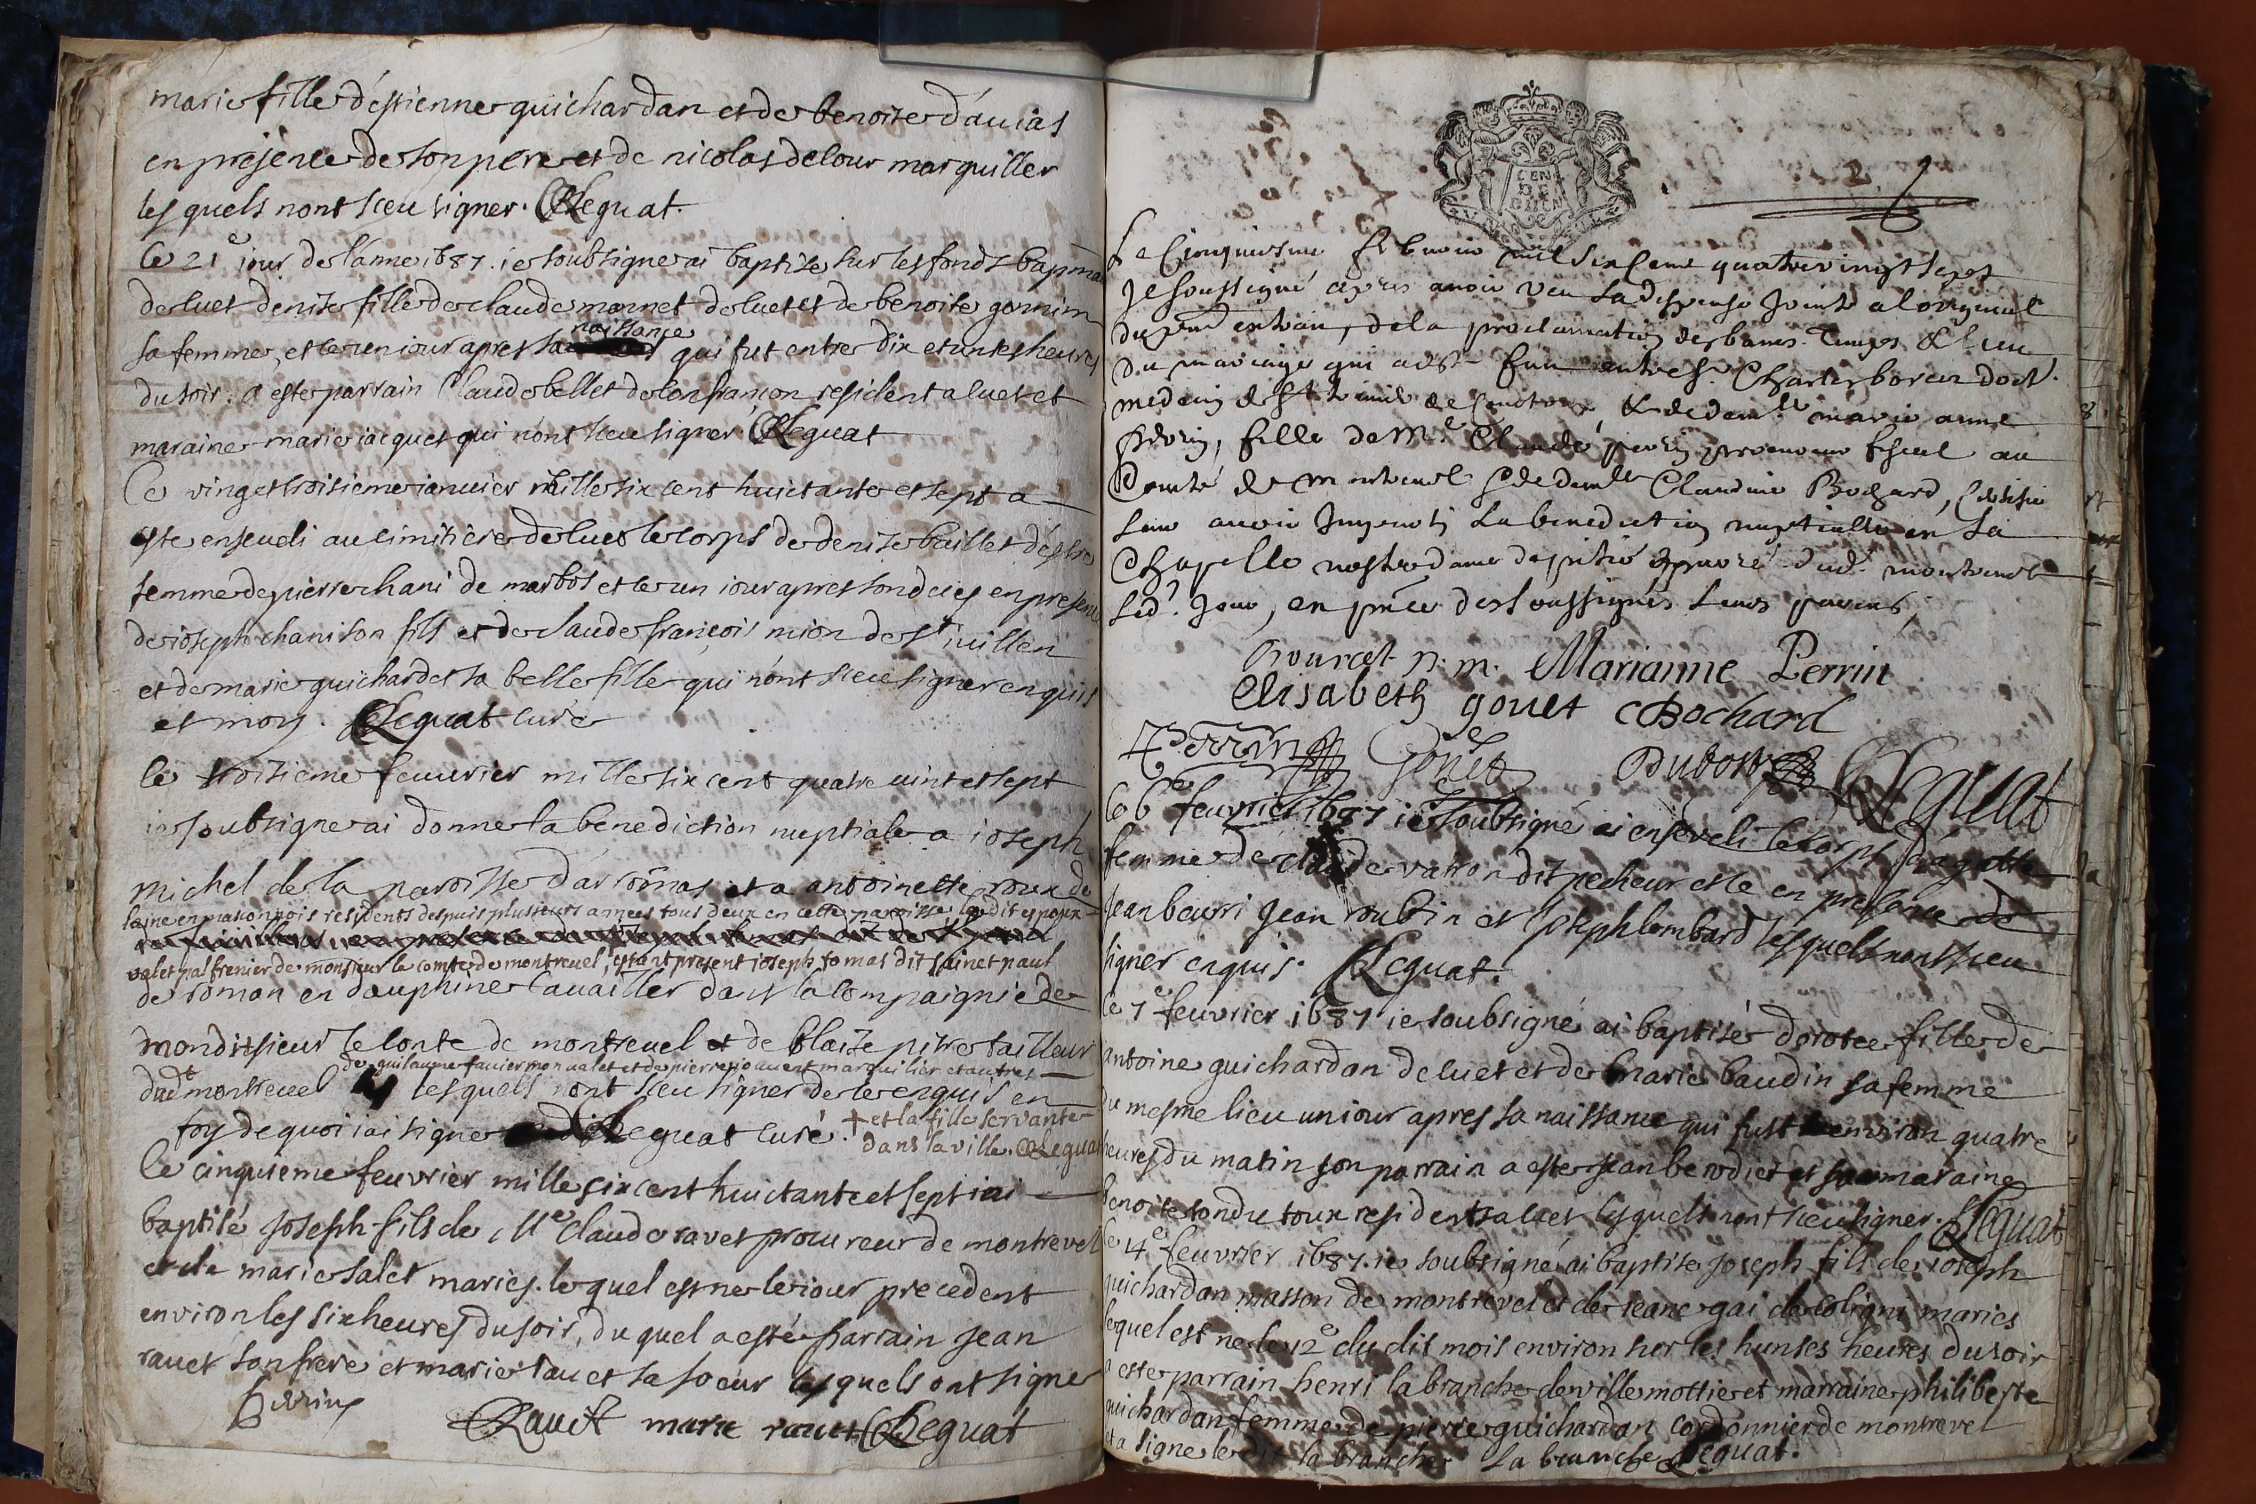 marie fille d'estienne guichardan et de benoite dauias
en presence de son pere et de nicolas delour marguiller
lesquels nont sceu signer. Leguat.
Ce 21e iour de lanne 1687. ie soubsigne ai baptise sur les fonds
de luet denise fille de claude monnet de luet et de benoite
naissance
sa femme, et le un iour apres sa qui fut entre dix et untes heures
du soir. a este parrain Claude bellet de confrançon resident a luet et
maraine marie iacquet qui n'ont sceu signer Leguat
Ce vingt troisieme ianuier mille six cent huictante et sept a
este enseueli au cimitiere de luet le corps de denise baillet
femme de pierre chani de marbos et le un iour apres son deces en presence
de ioseph chani son fils et de claude françois mion de st iullien
et de marie guichardet sa belle fille qui n'ont sceu signer enquis
et moy. Leguat curé
le troisieme feuurier mille six cent quatre uint et sept
ie soubsigne ai donne la benediction nuptiale a ioseph
michel de la paroisse d'arromas et a antoinette roux de
residents despuis plusieurs annees tous deux en cette paroisse ledit espoux
valet palfrenier de monsieur le comte de montreuel, estant present ioseph tomas dit sainct paul
de roman en dauphine cauailler dans la compaignie de
mondit sieur le conte de montreuel et de blaise pitre tailleur
de guilaume fauier mon ualet et de pierre marguilier et autres
dudt montreuel lesquels nont sceu signer de ce enquis en
foy de quoi iai signe Leguat curé. + et la fille servante
dans la ville. Leguat
Le cinquieme feuvrier mille six cent huictante et sept iai
baptisé Joseph fils de Me Claude ravet procureur de montrevel
et de marie salet maries. lequel est ne le iour precedent
environ les six heures du soir, duquel a esté parrain Jean
ravet son frere et marie rauet sa soeur lesquels ont signe
Perrin
Ravet marie ravet Leguat
2
CEN
DE
BUEN
Le Cinquiesme feburier mil six Cent quatre vingt sept
Je soussigné apres auoir veu la dispense Jointe a loriginal
du pnt extrait, de la proclamation des bans Temps & lieu
du mariage qui a este fait entre Sr. Charles borcer doct.
medecin & de damlle marie anne
perrin, fille de Me Claude perrin procureur fiscal au
Comté de montreuel & de damlle Claudine Bochard, Certifie
leur auoir Imparti la benediction nuptialle en la
Chapelle nostre dame de pitié dud. montreuel
led. Jour, en pnce des soussignés leurs parens,
D. m. Marianne Perrin
Elisabeth gouet CBochard
Perrin Gouet Dubost Leguat
Le 6e feuvrier 1687 ie soubsigné ai enseveli le corps
femme de claude vation dit pecheur et ce en presence de
Jean beurri Jean roubin et Joseph lombard lesquels nont sceu
signer enquis. Leguat.
Le 7e feuvrier 1687 ie soubsigné ai baptisé dorotee fille de
antoine guichardan de luet et de marie baudin sa femme
du mesme lieu un iour apres sa naissance qui fust environ quatre
heures du matin son parrain a este jean berodiet et sa maraine
benoite tondu toux residents a luet lesquels nont sceu signer. Leguat
le 14e feuvrier 1687. ie soubsigné ai baptise Joseph fils de ioseph
guichardan masson de montrevel et de jeane gai de coligni maries
lequel est ne le 12e du dit mois environ sur les hunses heures du soir
a este parrain henri la branche de villemottier et marraine philiberte
guichardan femme de pierre guichardan cordonnier de montrevel
et a signe le dit la branche la branche Leguat.